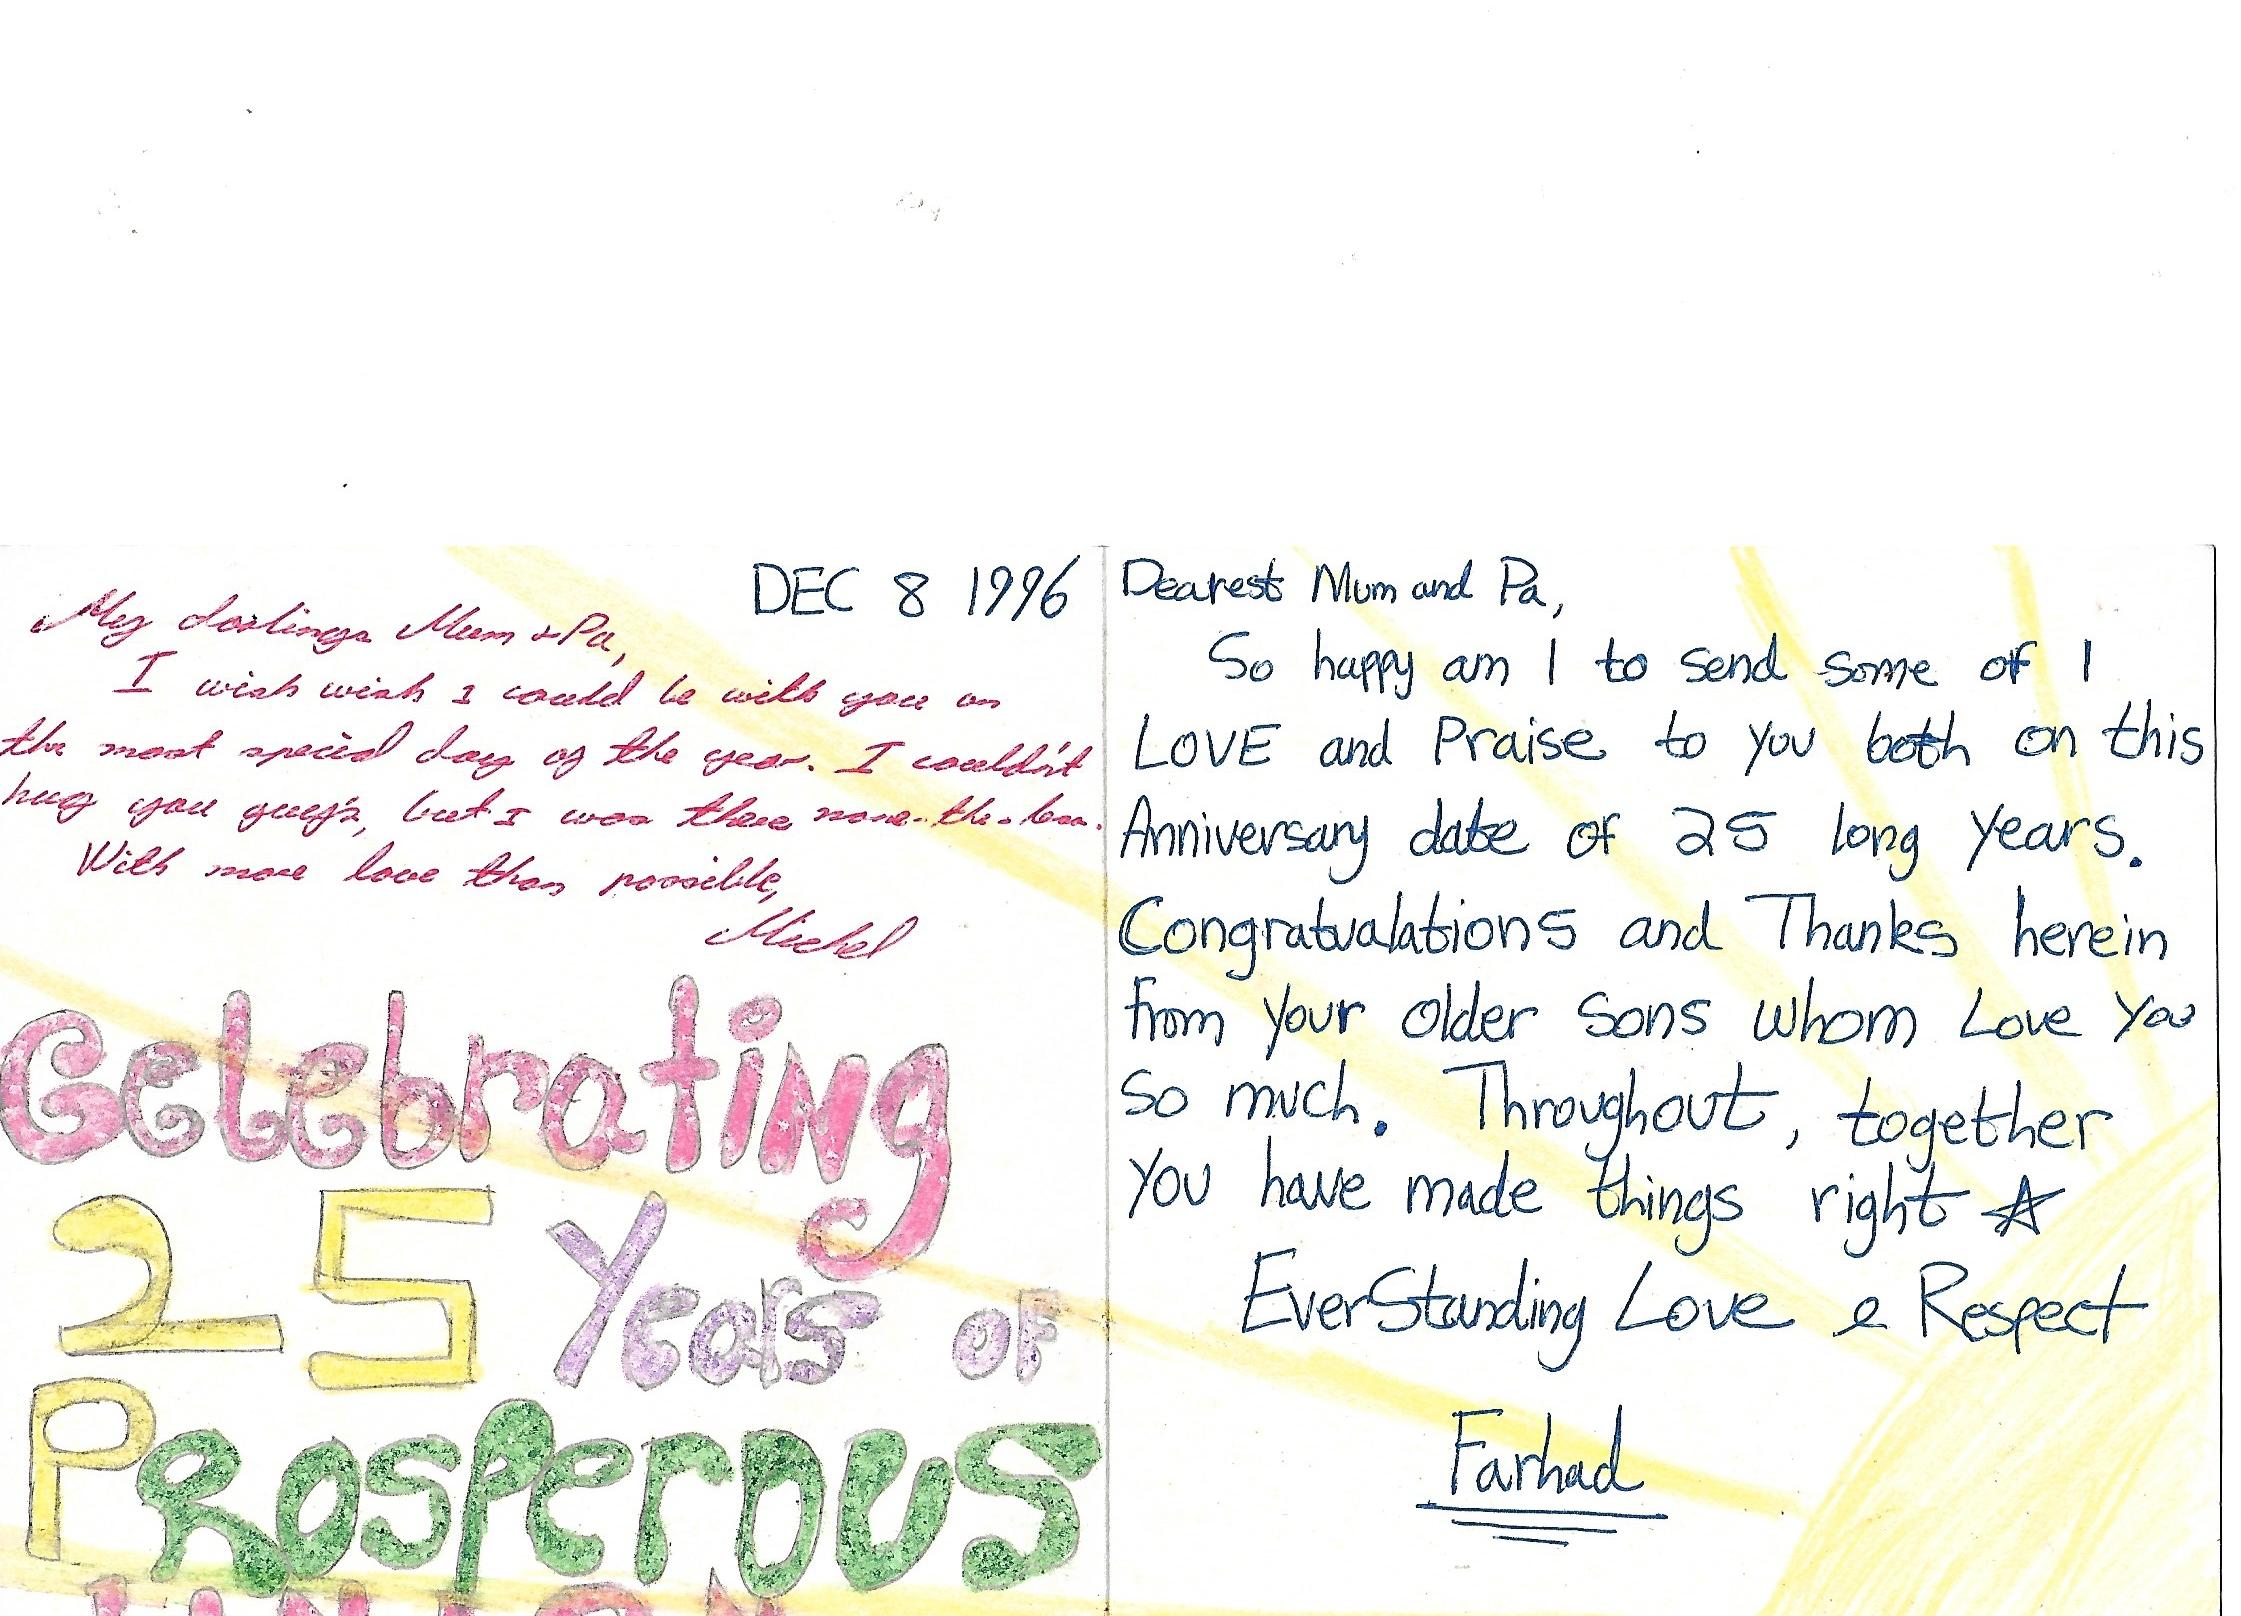 DEC 8 1996
My darlings Mum + Pa,
I wish wish I could be with you on
the most special day of the year. I couldn't
hug you guy's, but I was there none-the-less.
With more love than possible,
Michel
Celebrating
25 Years of
Prosperous
UNION
Dearest Mum and Pa,
So happy am I to send some of I
LOVE and Praise to you both on this
Anniversary date of 25 long years.
Congratualations and Thanks herein
from your older sons whom Love you
so much. Throughout, together
you have made things right ☆
EverStanding Love e Respect
Farhad